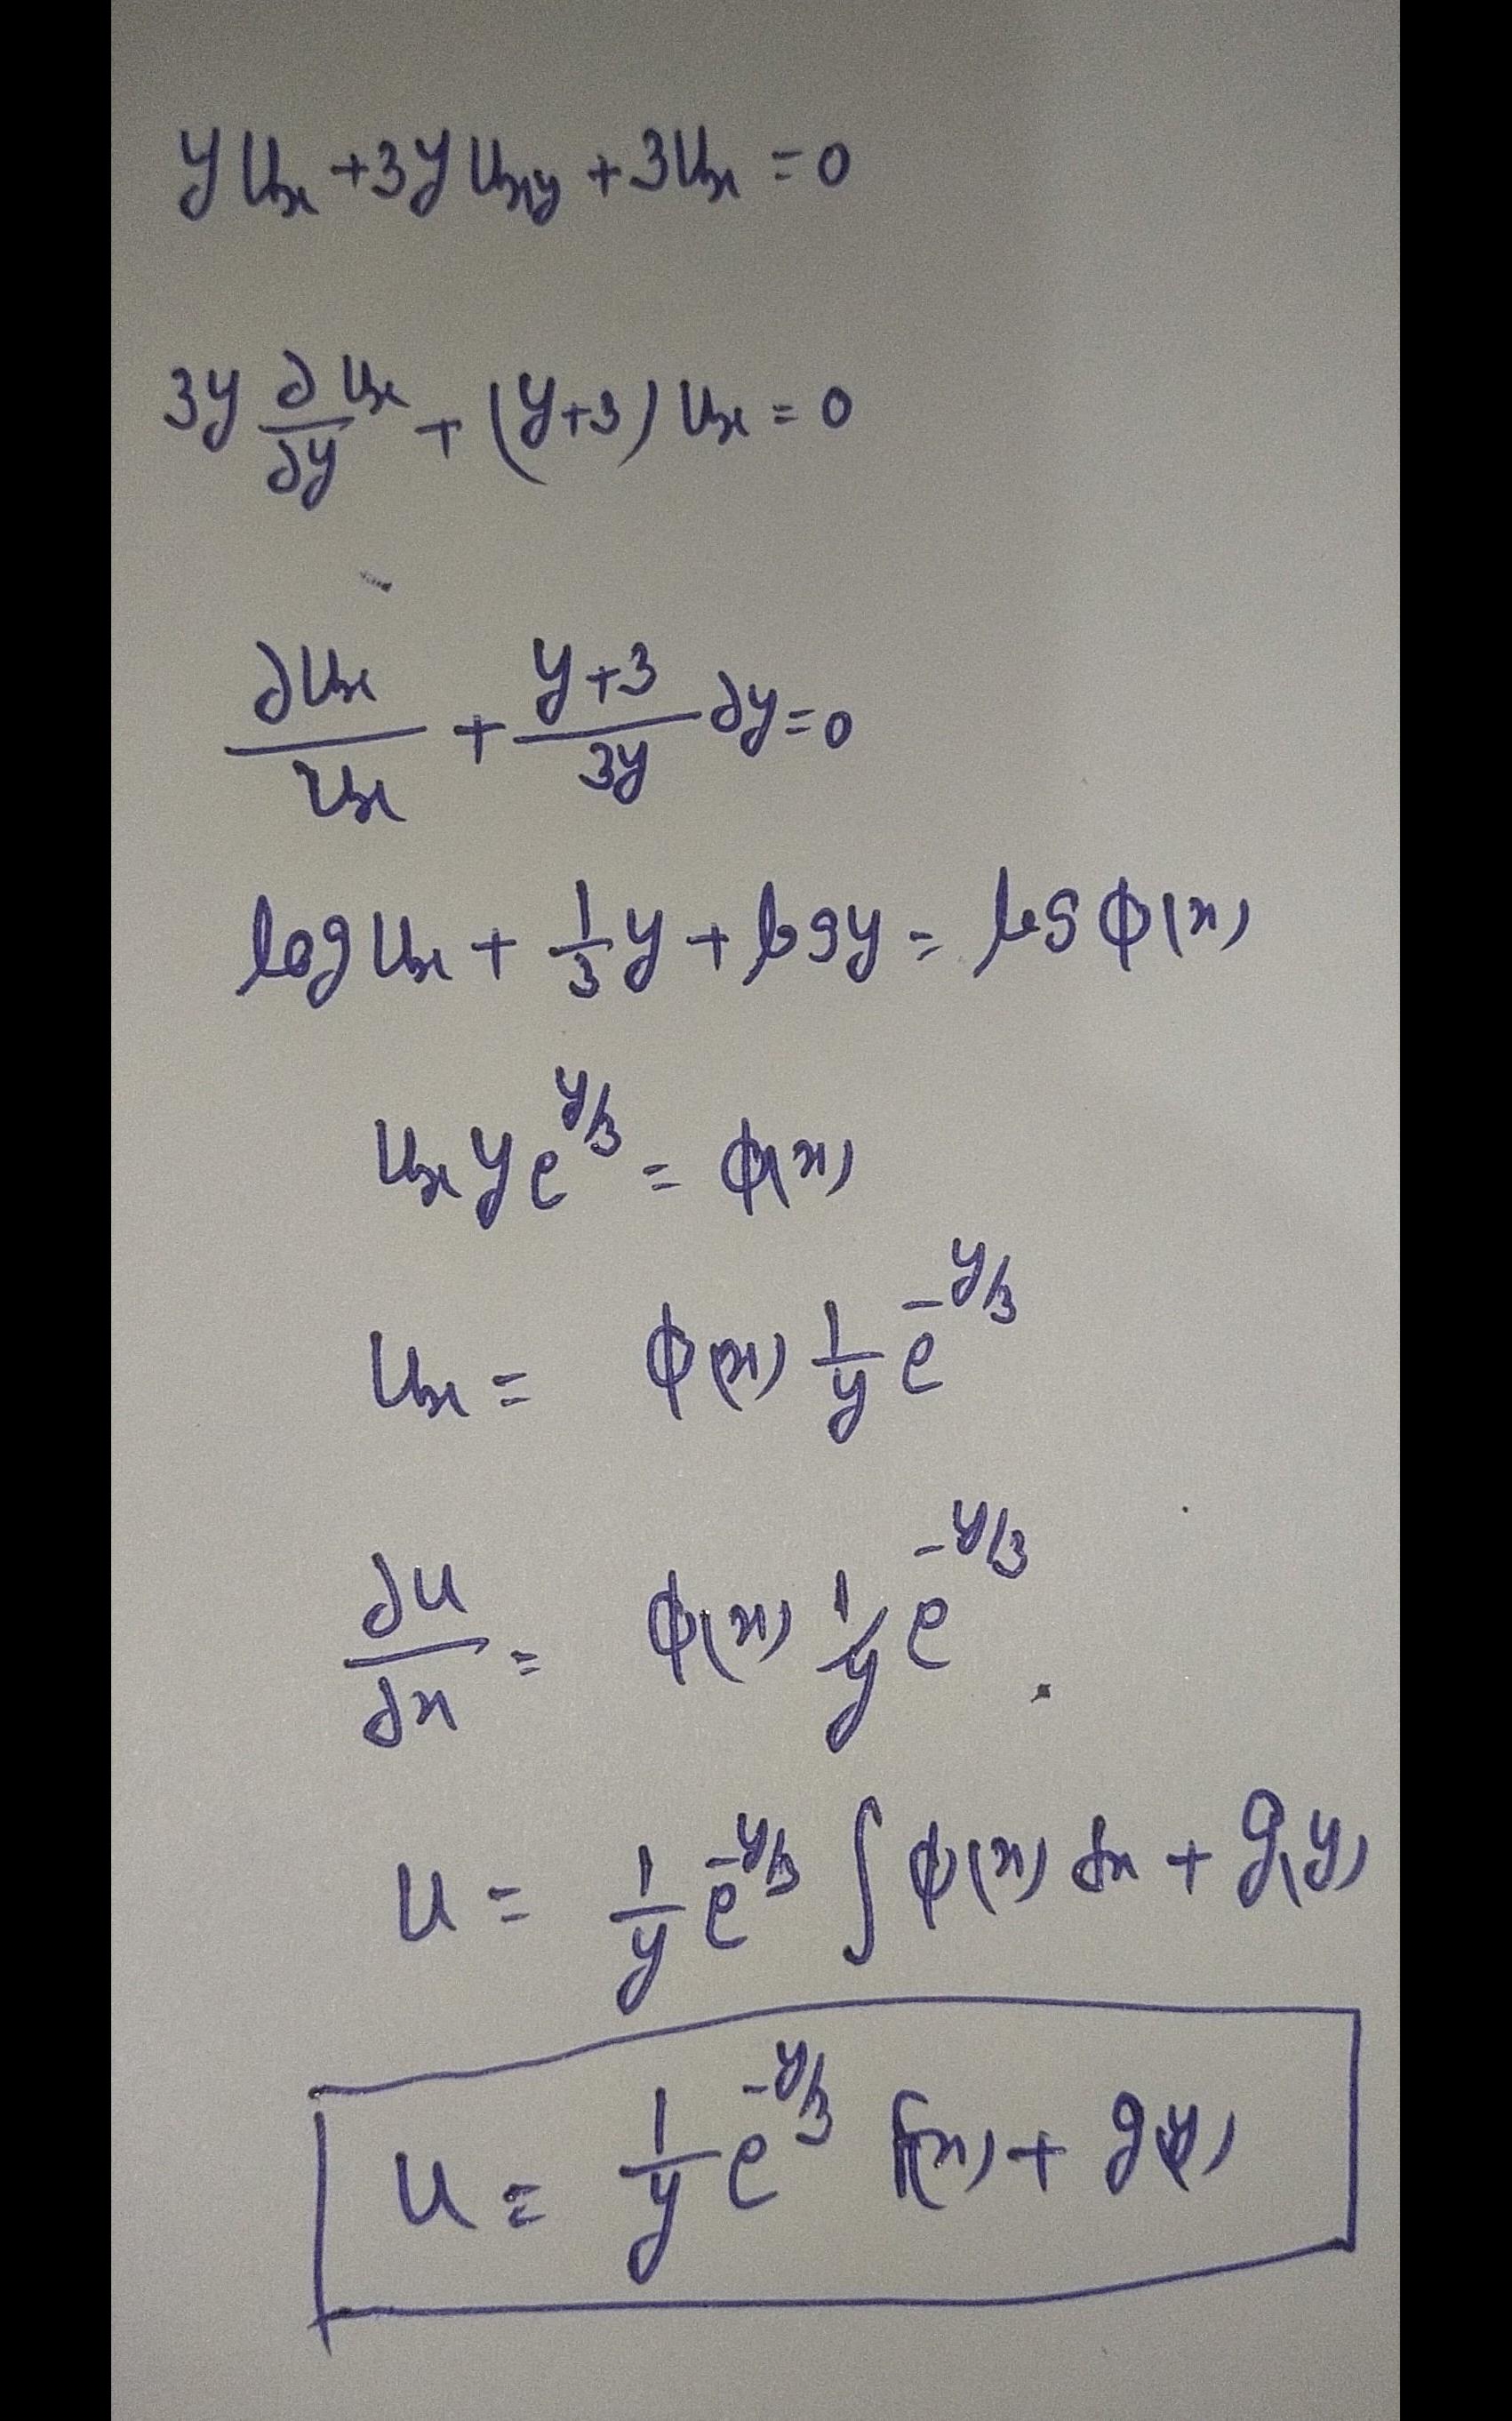 y uₓ + 3y uₓy + 3uₓ = 0
3y ∂uₓ/∂y + (y+3) uₓ = 0
∂uₓ/uₓ + (y+3)/3y ∂y = 0
log uₓ + 1/3 y + log y = log ϕ(x)
uₓ y e^(y/3) = ϕ(x)
uₓ = ϕ(x) 1/y e^(-y/3)
∂u/∂x = ϕ(x) 1/y e^(-y/3).
u = 1/y e^(-y/3) ∫ ϕ(x) dx + g(y)
u = 1/y e^(-y/3) f(x) + g(y)